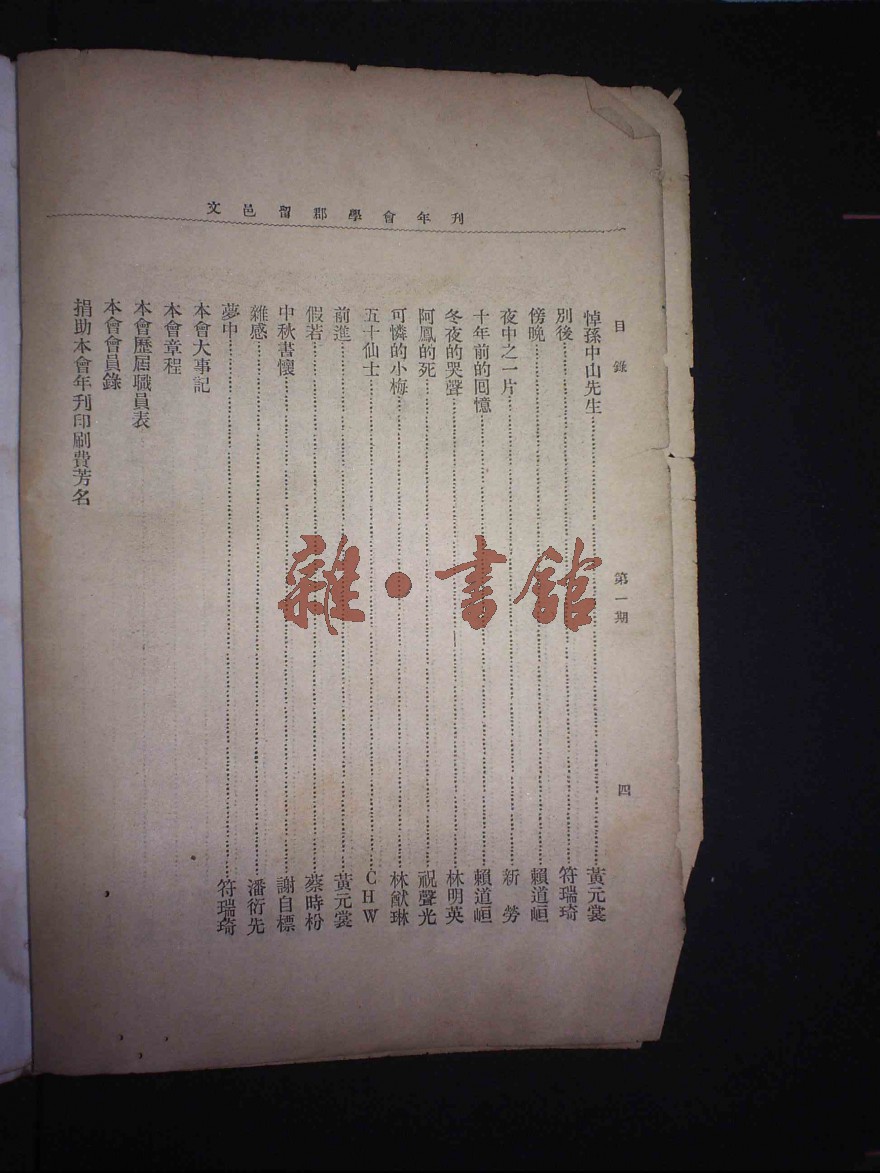 文邑留郡學會年刊
目錄 第一期 四
悼孫中山先生 黃元裳
別後 符瑞琦
傍晚 賴道峘
夜中之一片 新勞
十年前的回憶 賴道峘
冬夜的哭聲 林明英
阿鳳的死 祝聲光
可憐的小梅 林猷琳
五十仙士 CHW
前進 黃元裳
假若 蔡時枌
中秋書懷 謝自標
雜感 潘衍先
夢中 符瑞琦
本會大事記
本會章程
本會歷屆職員表
本會會員錄
捐助本會年刊印刷費芳名
雜·書館